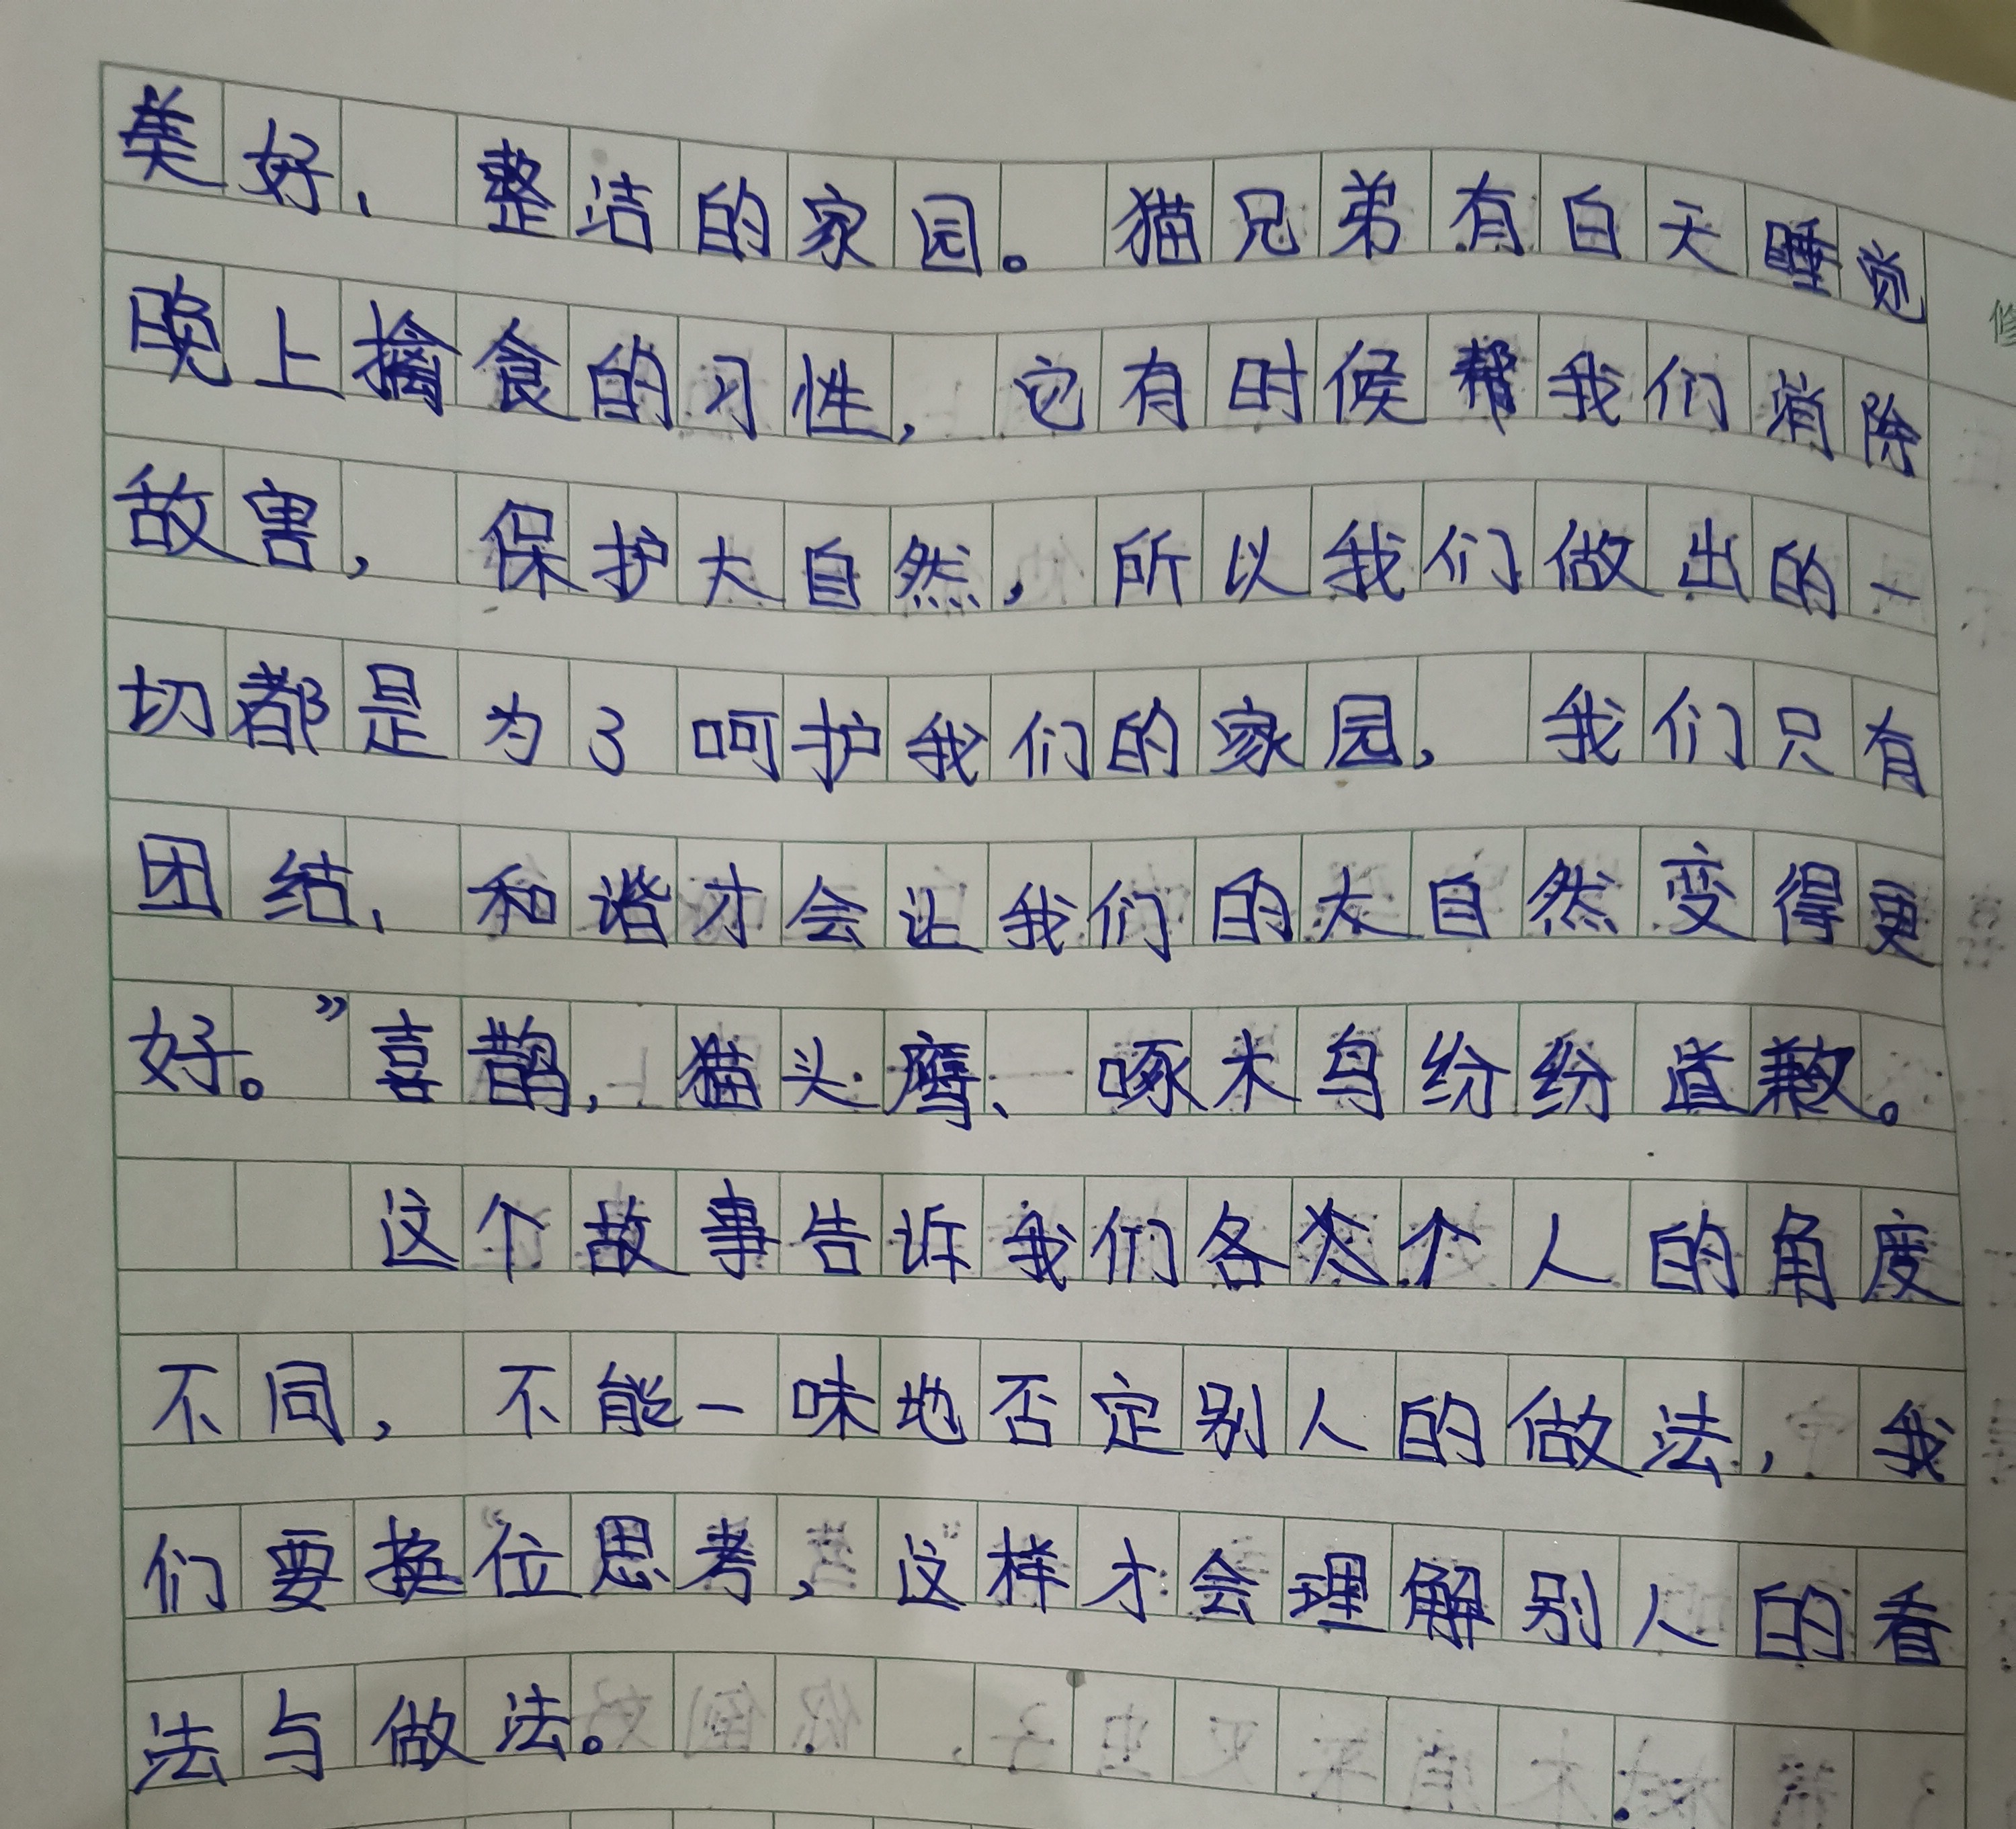 美好、整洁的家园。猫兄弟有白天睡觉
晚上擒食的习性，它有时候帮我们消除
故害，保护大自然，所以我们做出的一
切都是为了呵护我们的家园，我们只有
团结、和谐才会让我们的大自然变得更
好。”喜鹊，猫头鹰、啄木鸟纷纷道歉。
这个故事告诉我们各个人的角度
不同，不能一味地否定别人的做法，我
们要换位思考，这样才会理解别人的看
法与做法。